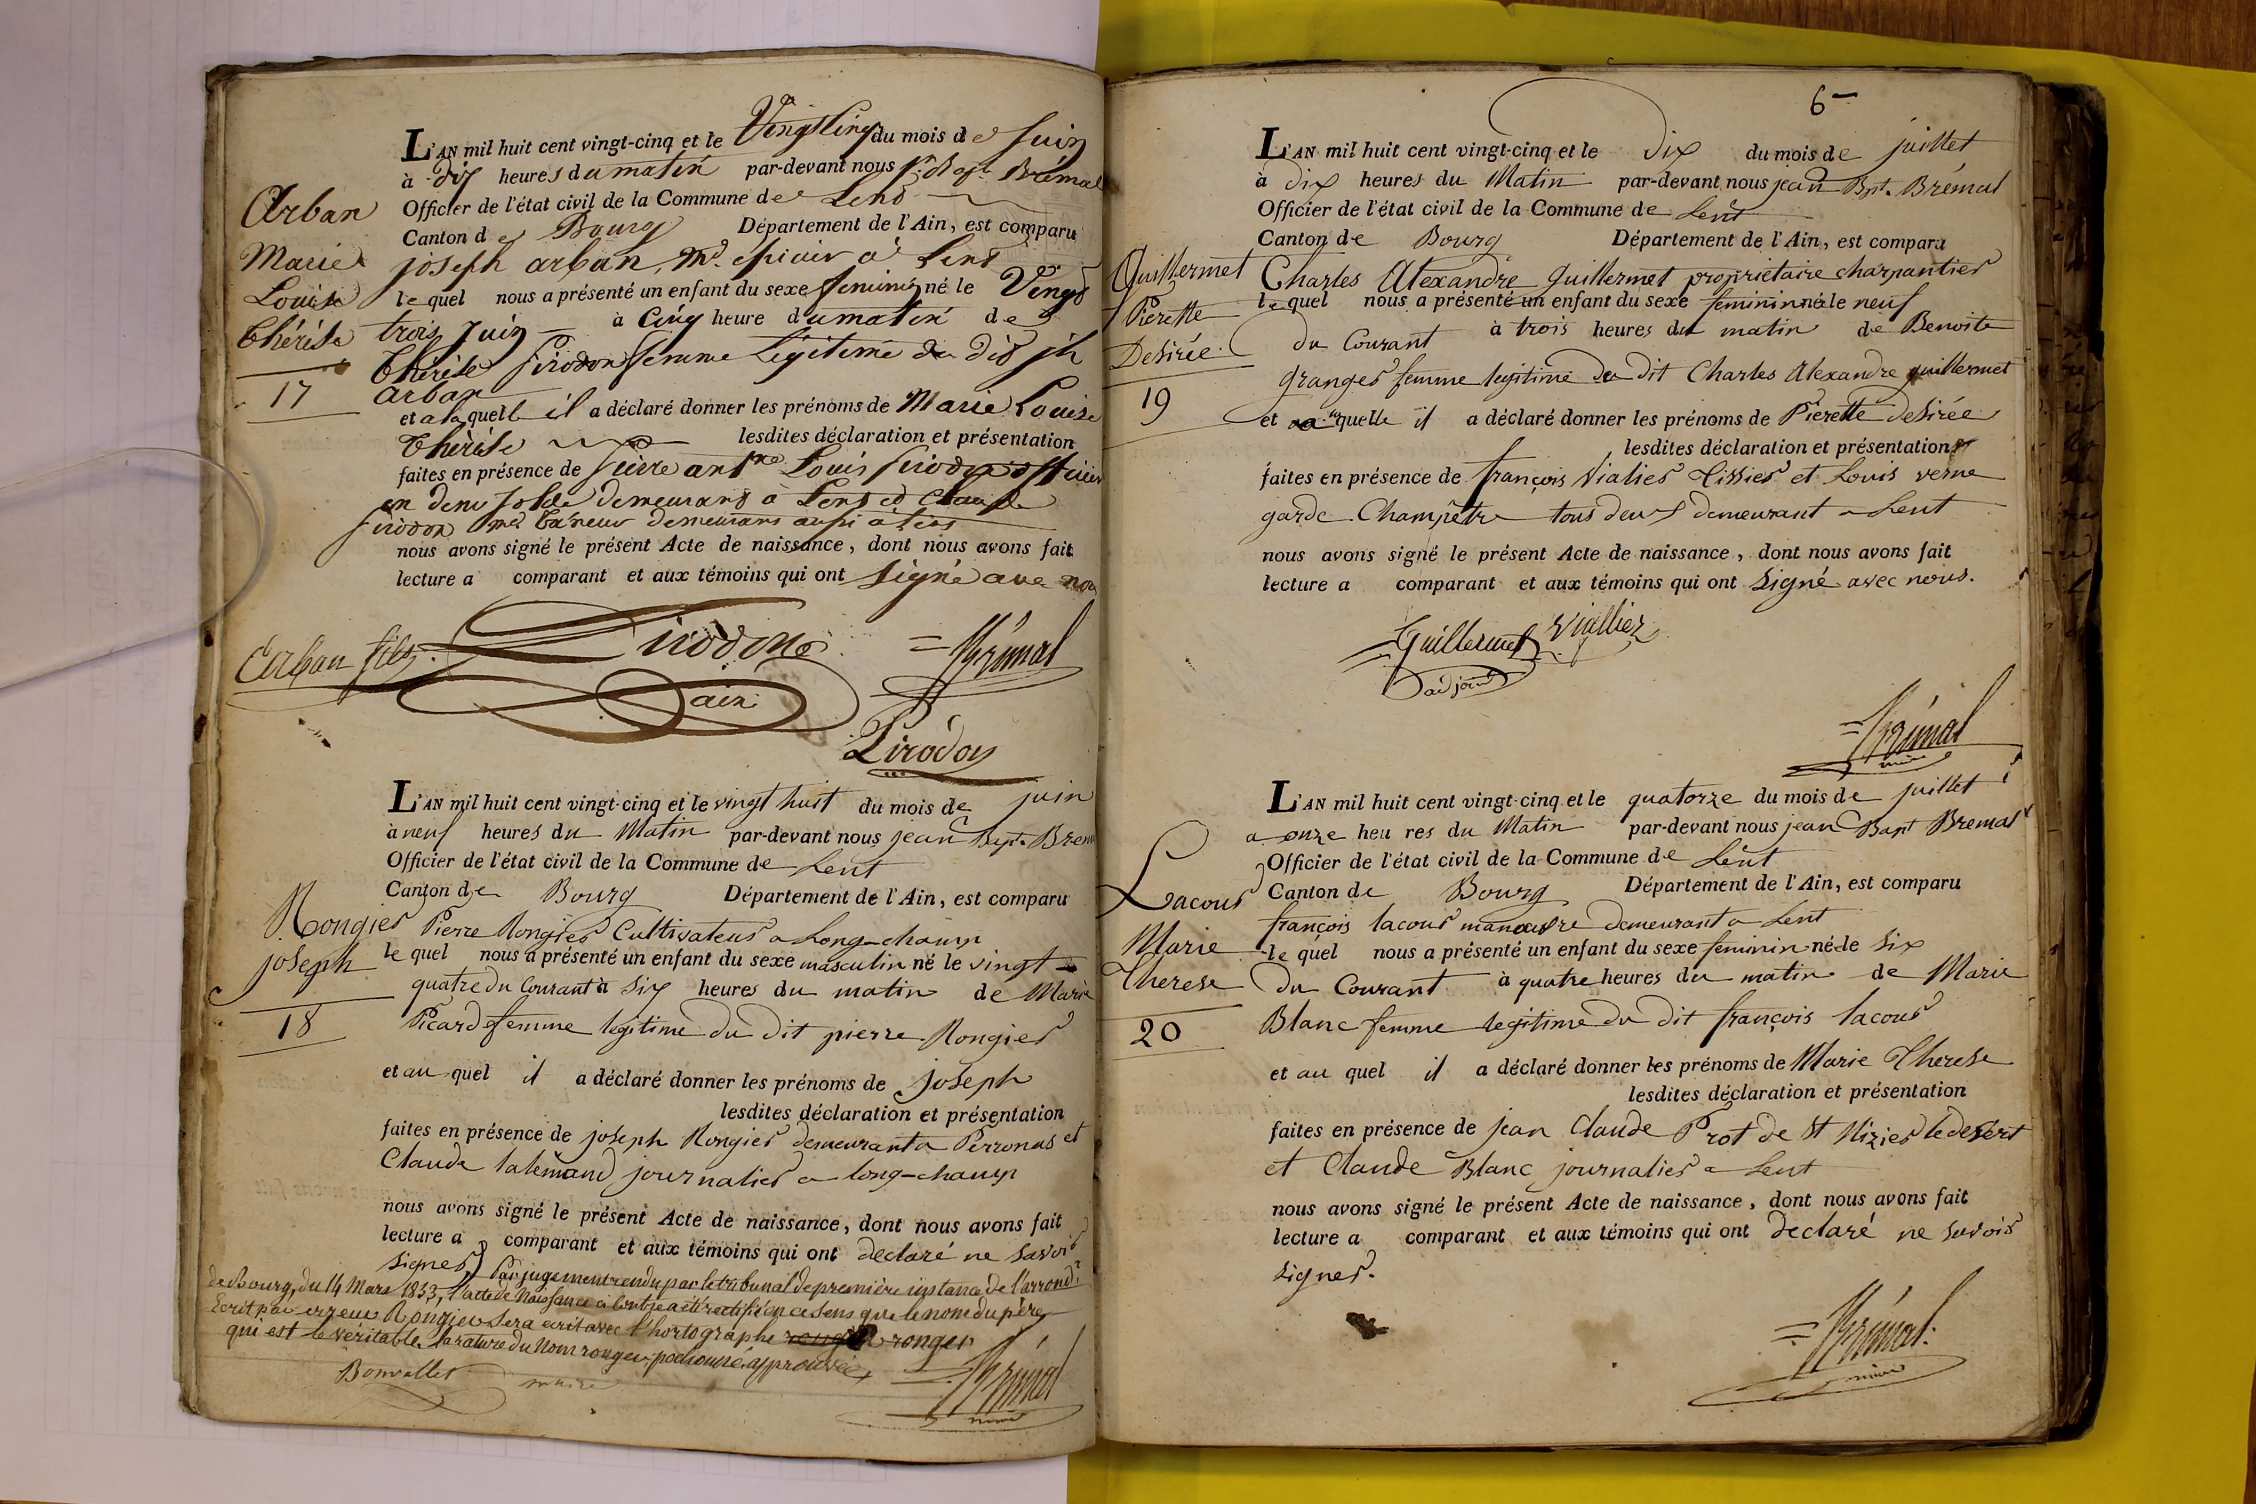 L'AN mil huit cent vingt-cinq et le Vingt cinq du mois de Juin
à dix heures du matin par-devant nous Jn Bapt Brémal
Officier de l'état civil de la Commune de Lent
Canton de Bourg Département de l'Ain, est comparu
joseph arban, md. épicier à Lent
le quel nous a présenté un enfant du sexe feminin né le Vingt
trois Juin à Cinq heure du matin de
Thérèse Sirodon femme Légitime du dit jh
arban
et a la quell il a déclaré donner les prénoms de Marie Louise
Thérèse lesdites déclaration et présentation
faites en présence de Pierre antne Louis Sirodon officier
en demi solde demeurant à Lent et Claude
Sirodon md Taneur demeurans aussi à Lent
nous avons signé le présent Acte de naissance, dont nous avons fait
lecture a comparant et aux témoins qui ont signé avec nous
Arban
Marie
Louise
Thérèse
17
Arban fils
Sirodon
Brémal
ain
Sirodon
L'AN mil huit cent vingt-cinq et le vingt huit du mois de juin
à neuf heures du Matin par-devant nous jean Bapt. Bremal
Officier de l'état civil de la Commune de Lent
Canton de Bourg Département de l'Ain, est comparu
Pierre Rongier Cultivateur a Long-champ
le quel nous a présenté un enfant du sexe masculin né le vingt
quatre du Courant à Six heures du matin de Marie
Picard femme legitime du dit pierre Rongier
et au quel il a déclaré donner les prénoms de joseph
lesdites déclaration et présentation
faites en présence de joseph Rongier demeurant a Perronas et
Claude lalemand journalier a long-champ
nous avons signé le présent Acte de naissance, dont nous avons fait
lecture a comparant et aux témoins qui ont declaré ne savoir
signer
Rongier
joseph
18
Par jugement rendu par le tribunal de première instance de l'arrondt
de Bourg, du 14 Mars 1853, l'acte de Naissance ci contre a été rectifié en ce sens que le nom du père
Ecrit par erreur Rongier sera ecrit avec l'hortographe ronger
qui est le véritable. La rature du Nom approuvée
Bonvallet maire
Brémal
maire
6
L'AN mil huit cent vingt-cinq et le dix du mois de juillet
à dix heures du Matin par-devant nous jean Bpt. Brémal
Officier de l'état civil de la Commune de Lent
Canton de Bourg Département de l'Ain, est comparu
Charles Alexandre Guillermet propriétaire charpantier
le quel nous a présenté un enfant du sexe feminin né le neuf
du Courant à trois heures du matin de Benoite
Granges femme legitime du dit Charles Alexandre guillermet
et a la quelle il a déclaré donner les prénoms de Pierette desirée
lesdites déclaration et présentation
faites en présence de françois Vialier Tissier et Louis verne
garde Champêtre tous deux demeurant a Lent
nous avons signé le présent Acte de naissance, dont nous avons fait
lecture a comparant et aux témoins qui ont Signé avec nous.
Guillermet
Pierette
Desirée
19
Guillermet Viallier
adjoint
Brémal
maire
L'AN mil huit cent vingt-cinq et le quatorze du mois de juillet
a onze heu res du Matin par-devant nous jean Bapt Bremal
Officier de l'état civil de la Commune de Lent
Canton de Bourg Département de l'Ain, est comparu
françois lacour manœuvre demeurant a Lent
le quel nous a présenté un enfant du sexe feminin né le six
du Courant à quatre heures du matin de Marie
Blanc femme legitime du dit françois lacour
et au quel il a déclaré donner les prénoms de Marie Therese
lesdites déclaration et présentation
faites en présence de jean Claude Prot de St Nizier le desert
et Claude Blanc journalier a Lent
nous avons signé le présent Acte de naissance, dont nous avons fait
lecture a comparant et aux témoins qui ont declaré ne savoir
signer.
Lacour
Marie
Therese
20
Brémal
maire